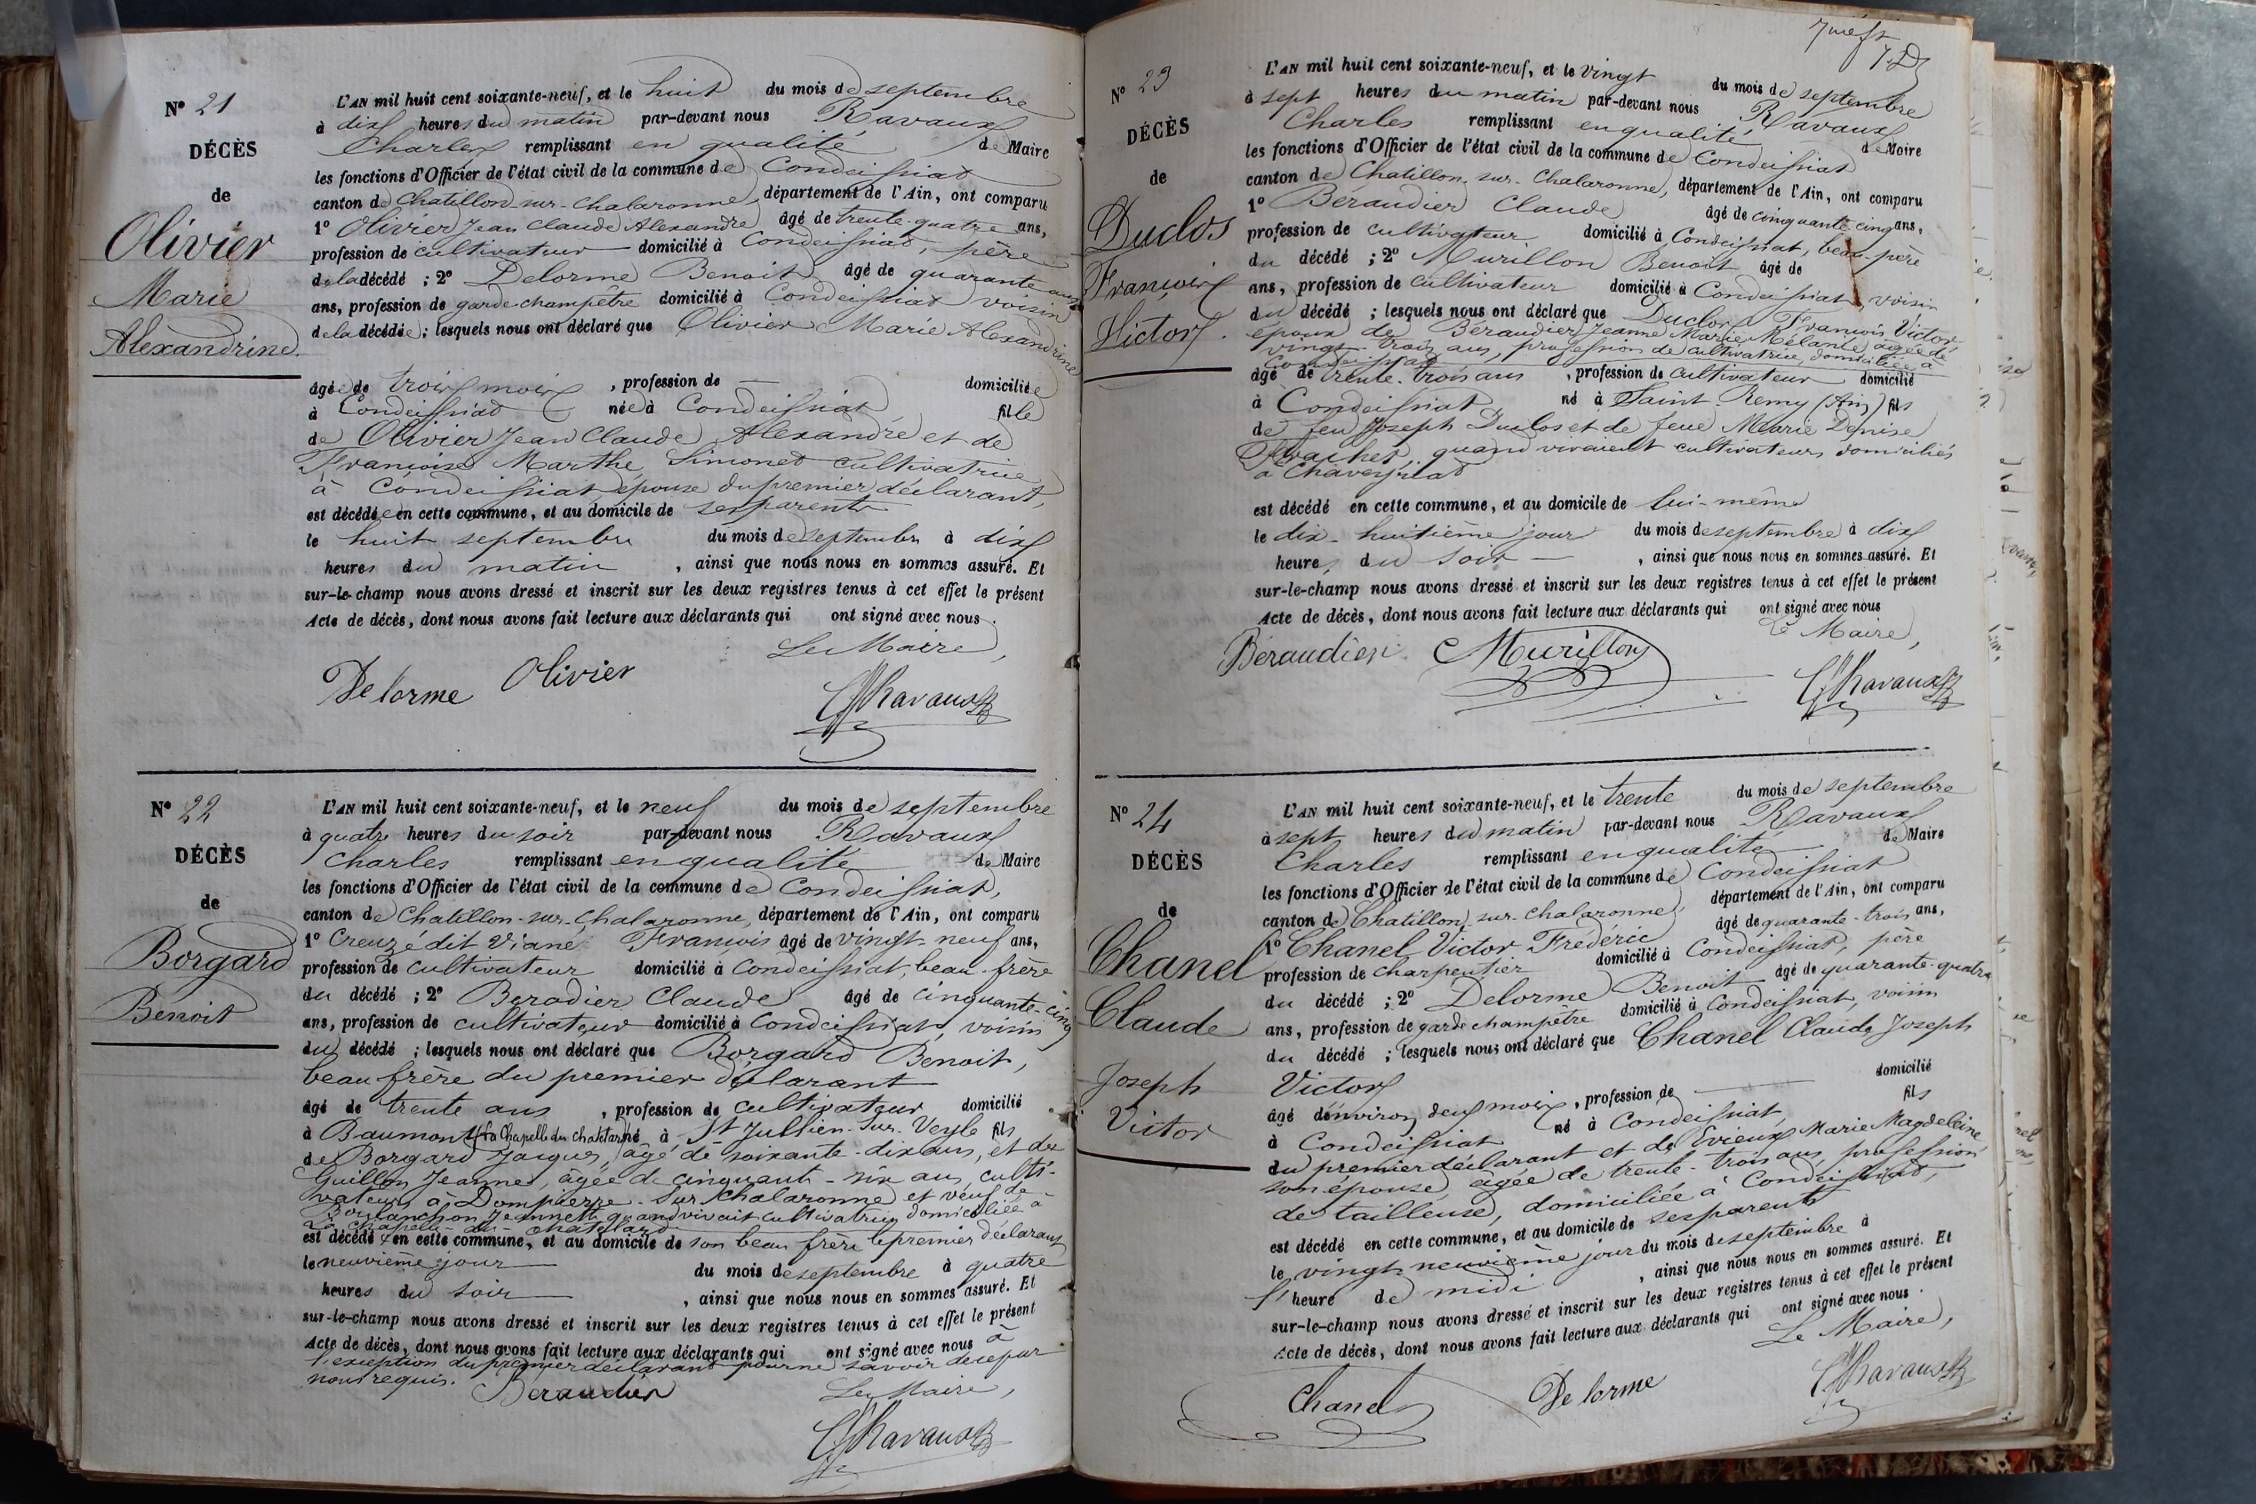 N° 21
DÉCÈS
de
Olivier
Marie
Alexandrine.
L'AN mil huit cent soixante-neuf, et le huit du mois de septembre
à dix heures du matin par-devant nous Ravaux
Charles remplissant en qualité de Maire
les fonctions d'Officier de l'état civil de la commune de Condeissiat
canton de Chatillon-sur-Chalaronne, département de l'Ain, ont comparu
1° Olivier Jean Claude Alexandre âgé de trente-quatre ans,
profession de cultivateur domicilié à Condeissiat, père
de la décédé ; 2° Delorme Benoit âgé de quarante
ans, profession de garde-champêtre domicilié à Condeissiat voisin
de la décédée ; lesquels nous ont déclaré que Olivier Marie Alexandrine
âgée de trois mois , profession de — domiciliée
à Condeissiat née à Condeissiat fille
de Olivier Jean Claude Alexandre et de
Françoise Marthe Simonet cultivatrice
à Condeissiat, épouse du premier déclarant,
est décédée en cette commune, et au domicile de ses parents
le huit septembre du mois de septembre à dix
heures du matin , ainsi que nous nous en sommes assuré. Et
sur-le-champ nous avons dressé et inscrit sur les deux registres tenus à cet effet le présent
Acte de décès, dont nous avons fait lecture aux déclarants qui ont signé avec nous.
Le Maire,
Delorme Olivier
Ch Ravaux
N° 22
DÉCÈS
de
Borgard
Benoit
L'AN mil huit cent soixante-neuf, et le neuf du mois de septembre
à quatre heures du soir par-devant nous Ravaux
Charles remplissant en qualité de Maire
les fonctions d'Officier de l'état civil de la commune de Condeissiat,
canton de Chatillon-sur-Chalaronne, département de l'Ain, ont comparu
1° Creuzé dit Viane François âgé de vingt-neuf ans,
profession de cultivateur domicilié à Condeissiat, beau-frère
du décédé ; 2° Berodier Claude âgé de cinquante-cinq
ans, profession de cultivateur domicilié à Condeissiat, voisin
du décédé ; lesquels nous ont déclaré que Borgard Benoit,
beau frère du premier déclarant
âgé de trente ans , profession de cultivateur domicilié
à Baumont (la Chapelle du chatelard) né à St Jullien-sur-Veyle fils
de Borgard Jacques, âgé de soixante-dix ans, et de
Guillon Jeanne, âgée de cinquante-six ans, culti-
vateurs à Dompierre-sur-Chalaronne et veuf de
Boulanchon Jeannette quand vivait cultivatrice domiciliée à
La Chapelle-du-Chatelard
est décédé en cette commune, et au domicile de son beau frère le premier déclarant
le neuvième jour du mois de septembre à quatre
heures du soir , ainsi que nous nous en sommes assuré. Et
sur-le-champ nous avons dressé et inscrit sur les deux registres tenus à cet effet le présent
Acte de décès, dont nous avons fait lecture aux déclarants qui ont signé avec nous à
l'exception du premier déclarant pour ne savoir de ce par
nous requis.
Beraudier Le Maire,
Ch Ravaux
7
N° 23
DÉCÈS
de
Duclos
François
Victor.
L'AN mil huit cent soixante-neuf, et le vingt du mois de septembre
à sept heures du matin par-devant nous Ravaux
Charles remplissant en qualité de Maire
les fonctions d'Officier de l'état civil de la commune de Condeissiat
canton de Chatillon-sur-Chalaronne, département de l'Ain, ont comparu
1° Béraudier Claude âgé de cinquante cinq ans,
profession de cultivateur domicilié à Condeissiat, beau-père
du décédé ; 2° Murillon Benoit âgé de
ans, profession de cultivateur domicilié à Condeissiat, voisin
du décédé ; lesquels nous ont déclaré que Duclos François Victor
époux de Béraudier Jeanne Marie Mélanie âgée de
vingt-trois ans, profession de cultivatrice, domiciliée à
Condeissiat
âgé de trente-trois ans , profession de cultivateur domicilié
à Condeissiat né à Saint-Remy (Ain) fils
de feu Joseph Duclos et de feue Marie Denise
quand vivaient cultivateurs domiciliés
à Chaveyriat
est décédé en cette commune, et au domicile de lui-même
le dix-huitième jour du mois de septembre à dix
heures du soir , ainsi que nous nous en sommes assuré. Et
sur-le-champ nous avons dressé et inscrit sur les deux registres tenus à cet effet le présent
Acte de décès, dont nous avons fait lecture aux déclarants qui ont signé avec nous
Le Maire,
Béraudier Murillon
Ch Ravaux
N° 24
DÉCÈS
de
Chanel
Claude
Joseph
Victor
L'AN mil huit cent soixante-neuf, et le trente du mois de septembre
à sept heures du matin par-devant nous Ravaux
Charles remplissant en qualité de Maire
les fonctions d'Officier de l'état civil de la commune de Condeissiat
canton de Chatillon-sur-Chalaronne, département de l'Ain, ont comparu
1° Chanel Victor Frédéric âgé de quarante-trois ans,
profession de charpentier domicilié à Condeissiat, père
du décédé ; 2° Delorme Benoit âgé de quarante-quatre
ans, profession de garde champêtre domicilié à Condeissiat, voisin
du décédé ; lesquels nous ont déclaré que Chanel Claude Joseph
Victor
âgé d'environ deux mois , profession de — domicilié
à Condeissiat né à Condeissiat, fils
du premier déclarant et de Evieux Marie Magdeleine
son épouse, agée de trente-trois ans, profession
de tailleuse, domiciliée à Condeissiat,
est décédé en cette commune, et au domicile de ses parents
le vingt-neuvième jour du mois de septembre à
l'heure de midi , ainsi que nous nous en sommes assuré. Et
sur-le-champ nous avons dressé et inscrit sur les deux registres tenus à cet effet le présent
Acte de décès, dont nous avons fait lecture aux déclarants qui ont signé avec nous.
Le Maire,
Chanel Delorme
Ch Ravaux